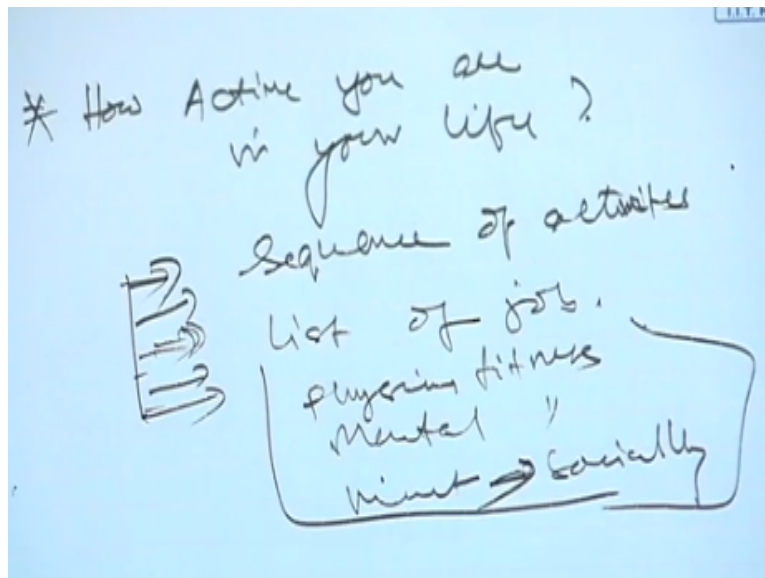 * How Active you are
in your life?
Sequence of activites
List of job.
fitness
Mental "
→ Socially
I.I.T.